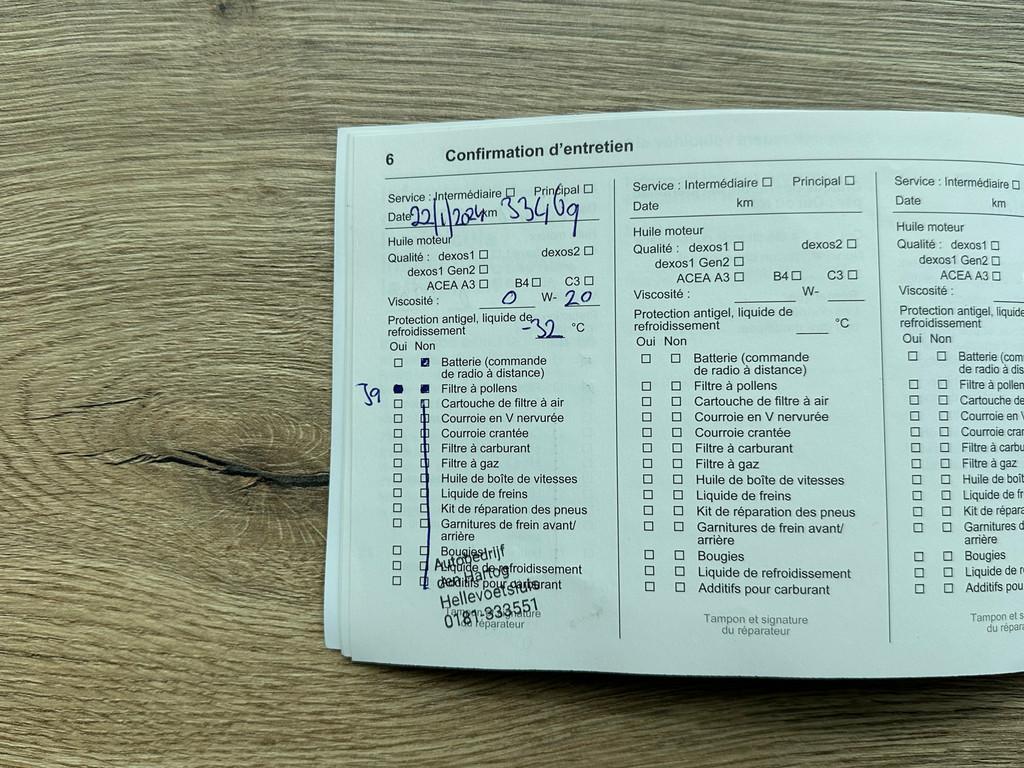 6 Confirmation d'entretien
Service : Intermédiaire □ Principal □
Date 22/1/2024 km 33469
Huile moteur
Qualité : dexos1 □ dexos2 □
dexos1 Gen2 □
ACEA A3 □ B4 □ C3 □
Viscosité : 0 W- 20
Protection antigel, liquide de
refroidissement -32 °C
Oui Non
Batterie (commande
de radio à distance)
Filtre à pollens
Cartouche de filtre à air
Courroie en V nervurée
Courroie crantée
Filtre à carburant
Filtre à gaz
Huile de boîte de vitesses
Liquide de freins
Kit de réparation des pneus
Garnitures de frein avant/
arrière
Bougies
Liquide de refroidissement
Additifs pour carburant
Autobedrijf
den Hartog
Hellevoetsluis
0181-333551
Tampon et signature
du réparateur
Service : Intermédiaire □ Principal □
Date km
Huile moteur
Qualité : dexos1 □ dexos2 □
dexos1 Gen2 □
ACEA A3 □ B4 □ C3 □
Viscosité : W-
Protection antigel, liquide de
refroidissement °C
Oui Non
Batterie (commande
de radio à distance)
Filtre à pollens
Cartouche de filtre à air
Courroie en V nervurée
Courroie crantée
Filtre à carburant
Filtre à gaz
Huile de boîte de vitesses
Liquide de freins
Kit de réparation des pneus
Garnitures de frein avant/
arrière
Bougies
Liquide de refroidissement
Additifs pour carburant
Tampon et signature
du réparateur
Service : Intermédiaire □
Date km
Huile moteur
Qualité : dexos1 □
dexos1 Gen2 □
ACEA A3 □
Viscosité :
Protection antigel, liquide
refroidissement
Oui Non
Batterie (com
de radio à dis
Filtre à pollen
Cartouche de
Courroie en V
Courroie cran
Filtre à carbu
Filtre à gaz
Huile de boît
Liquide de fr
Kit de répara
Garnitures d
arrière
Bougies
Liquide de r
Additifs pou
Tampon et s
du répar